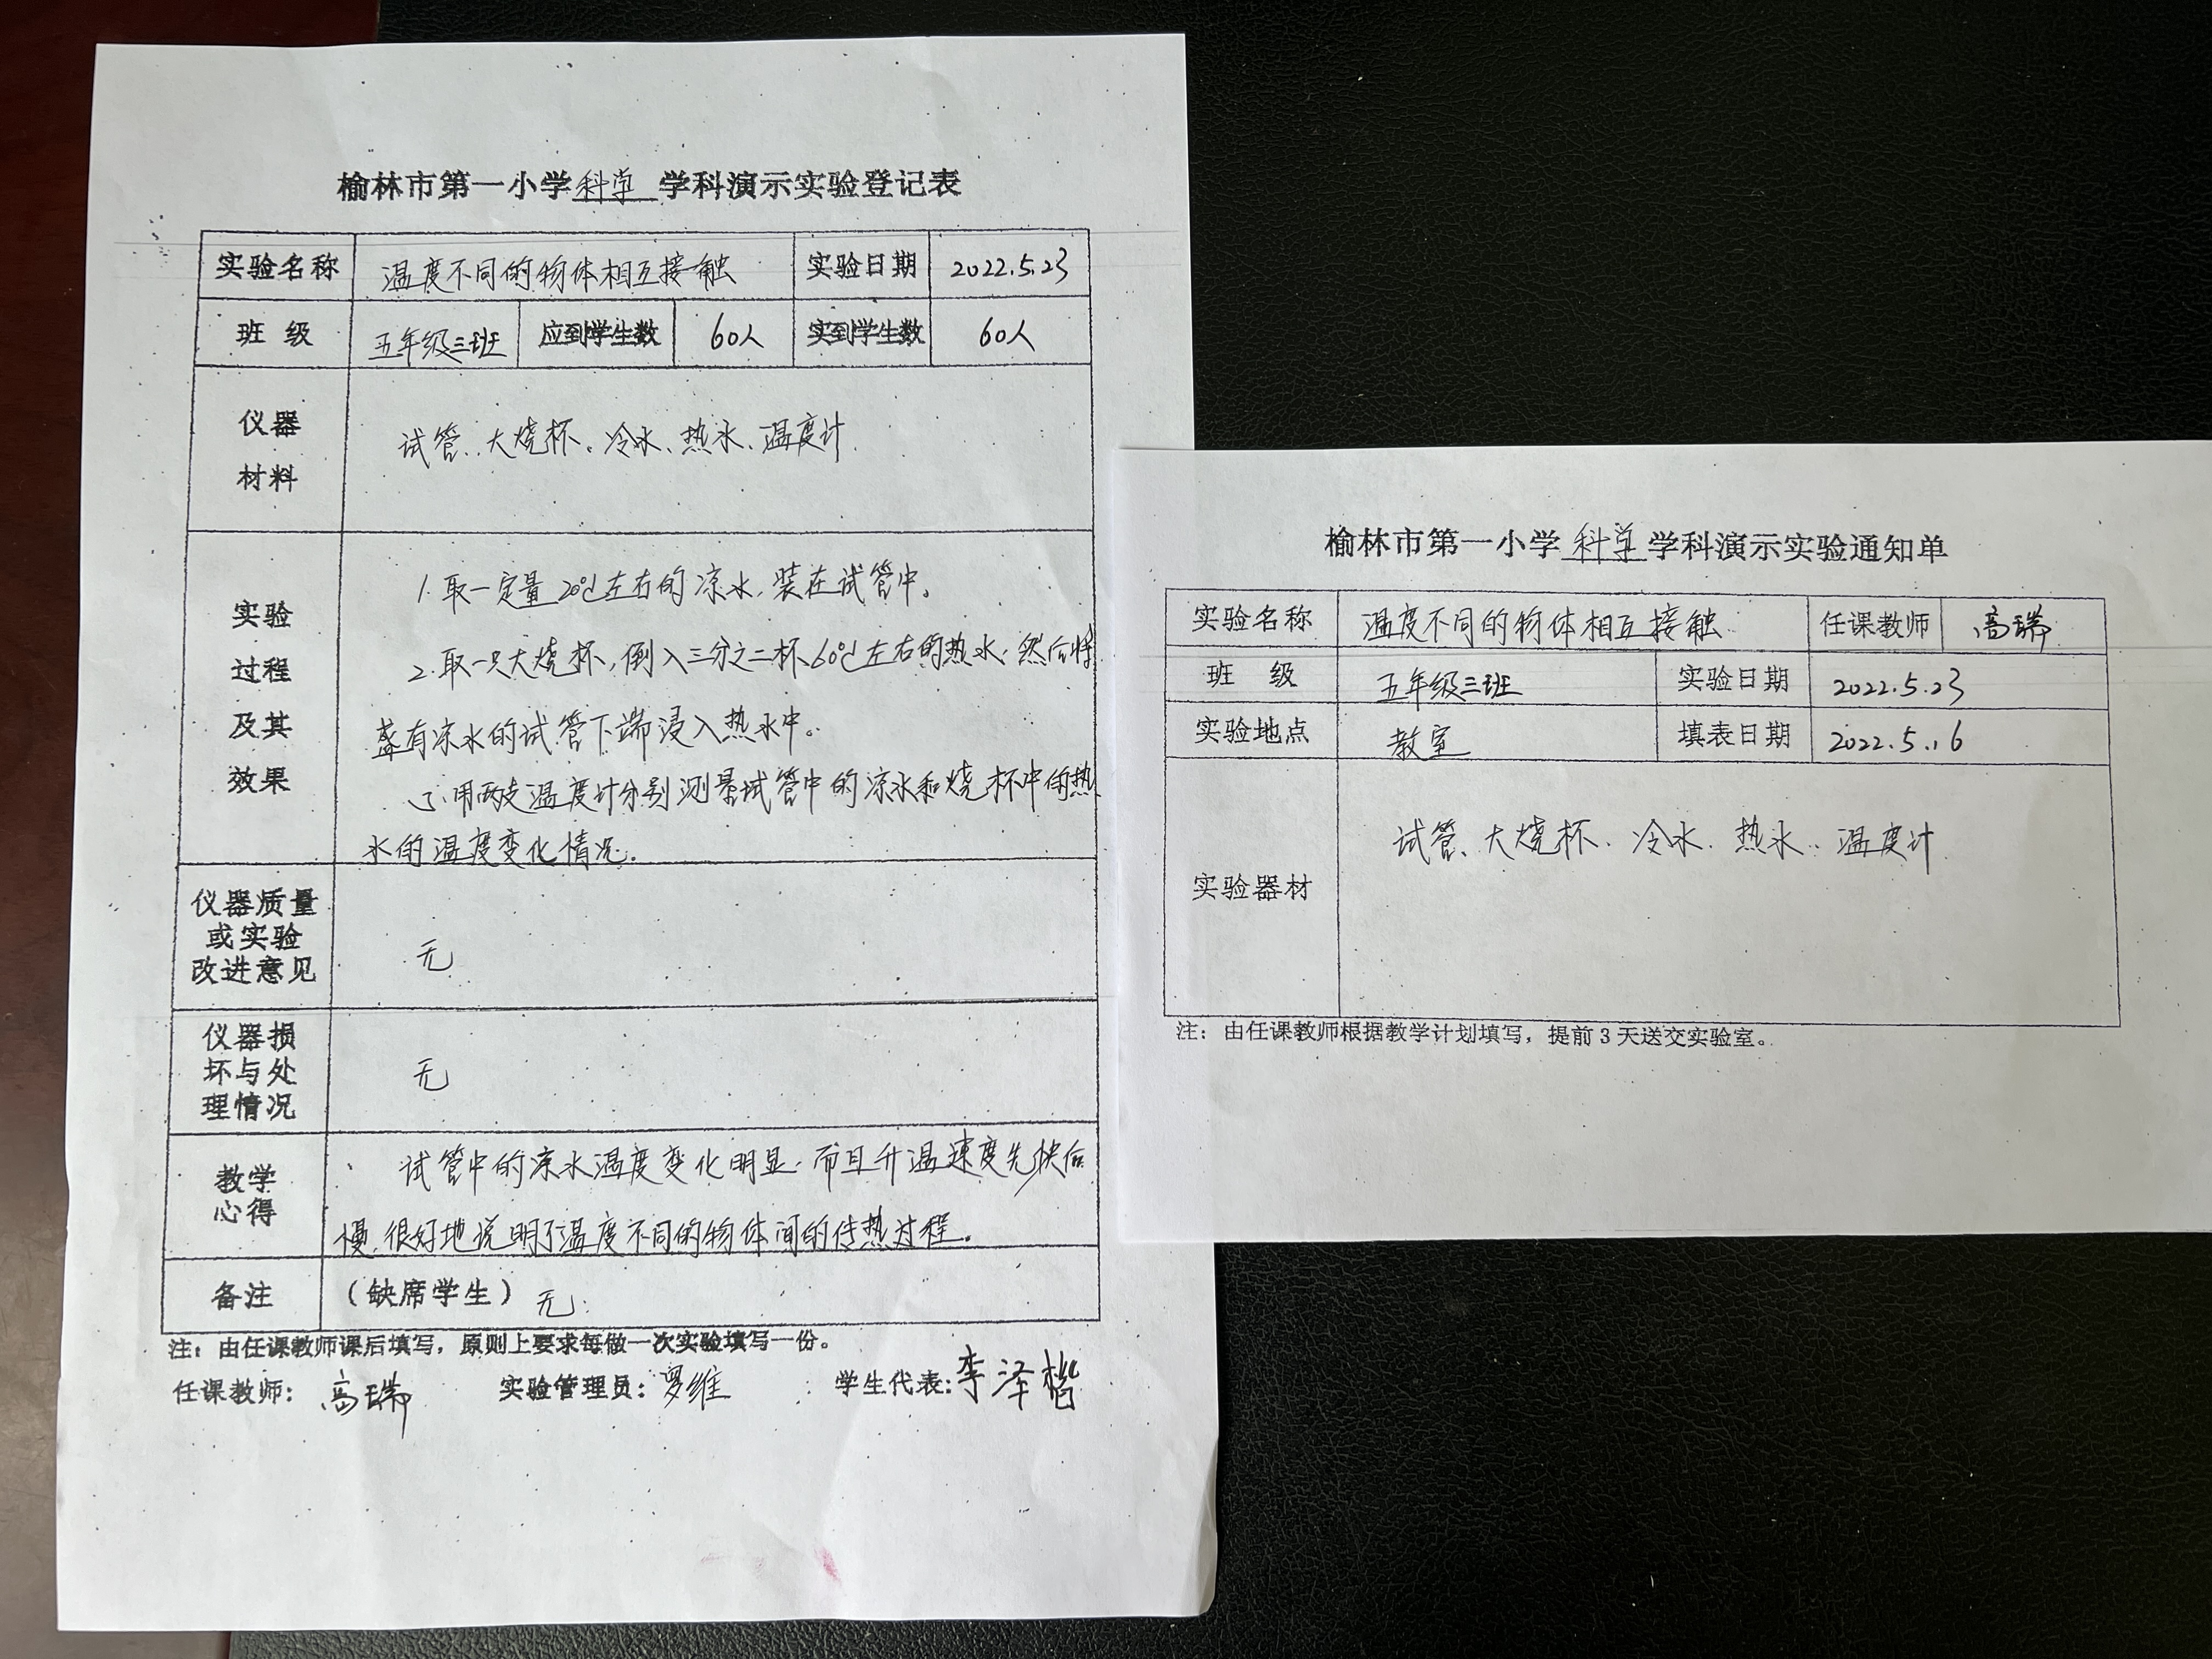 榆林市第一小学科学学科演示实验登记表
实验名称 温度不同的物体相互接触 实验日期 2022.5.23
班 级 五年级三班 应到学生数 60人 实到学生数 60人
仪器
材料
试管、大烧杯、冷水、热水、温度计
实验
过程
及其
效果
1.取一定量20℃左右的凉水,装在试管中。
2.取一只大烧杯,倒入三分之二杯60℃左右的热水,然后将
盛有凉水的试管下端浸入热水中。
3.用两支温度计分别测量试管中的凉水和烧杯中的热
水的温度变化情况.
仪器质量
或实验
改进意见
无
仪器损
坏与处
理情况
无
教学
心得
试管中的凉水温度变化明显.而且升温速度先快后
慢,很好地说明了温度不同的物体间的传热过程。
备注 (缺席学生) 无
注:由任课教师课后填写,原则上要求每做一次实验填写一份。
任课教师: 高瑞 实验管理员: 罗维 学生代表: 李泽楷
榆林市第一小学科学学科演示实验通知单
实验名称 温度不同的物体相互接触 任课教师 高瑞
班 级 五年级三班 实验日期 2022.5.23
实验地点 教室 填表日期 2022.5.16
实验器材
试管、大烧杯、冷水、热水、温度计
注:由任课教师根据教学计划填写,提前3天送交实验室。